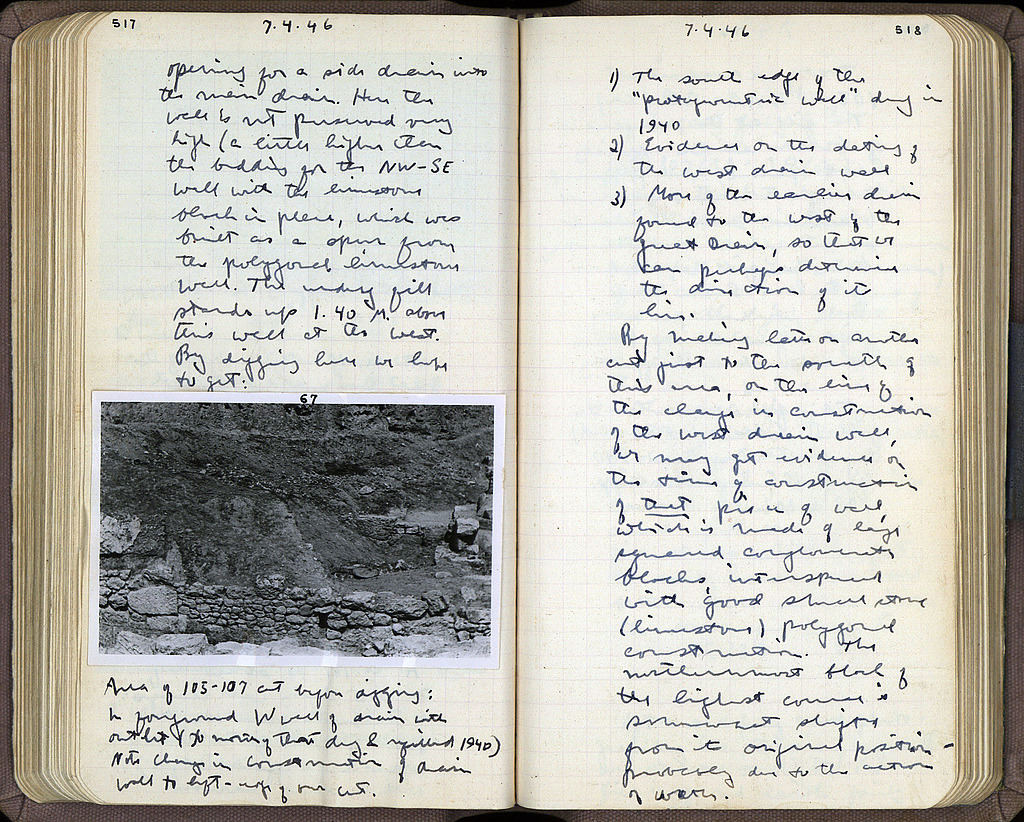 517
7.4.46
opening for a side drain into
the main drain. Here the
wall is not preserved very
high (a little higher than
the bedding for the NW-SE
wall with the limestone
block in place, which was
built as a spur from
the polygonal limestone
wall. The undug fill
stands up 1.40 M. above
this wall at the west.
By digging here we hope
to get:
67
Area of 105-107 cut before digging:
In foreground W wall of drain with
outlet (to north of that dug & refilled 1940)
Note change in construction of drain
wall to left - edge of our cut.
7.4.46
518
1) The south edge of the
"protogeometric wall" dug in
1940
2) Evidence on the dating of
the west drain wall
3) More of the earlier drain
found to the west of the
great drain, so that we
can perhaps determine
the direction of its
line.
By making later on another
cut just to the south of
this area, on the line of
the change in construction
of the west drain wall,
we may get evidence on
the time of construction
of that piece of wall,
which is made of large
squared conglomerate
blocks, interspersed
with good small stone
(limestone) polygonal
construction. The
northernmost block of
the highest course is
somewhat shifted
from its original position -
probably due to the action
of water.